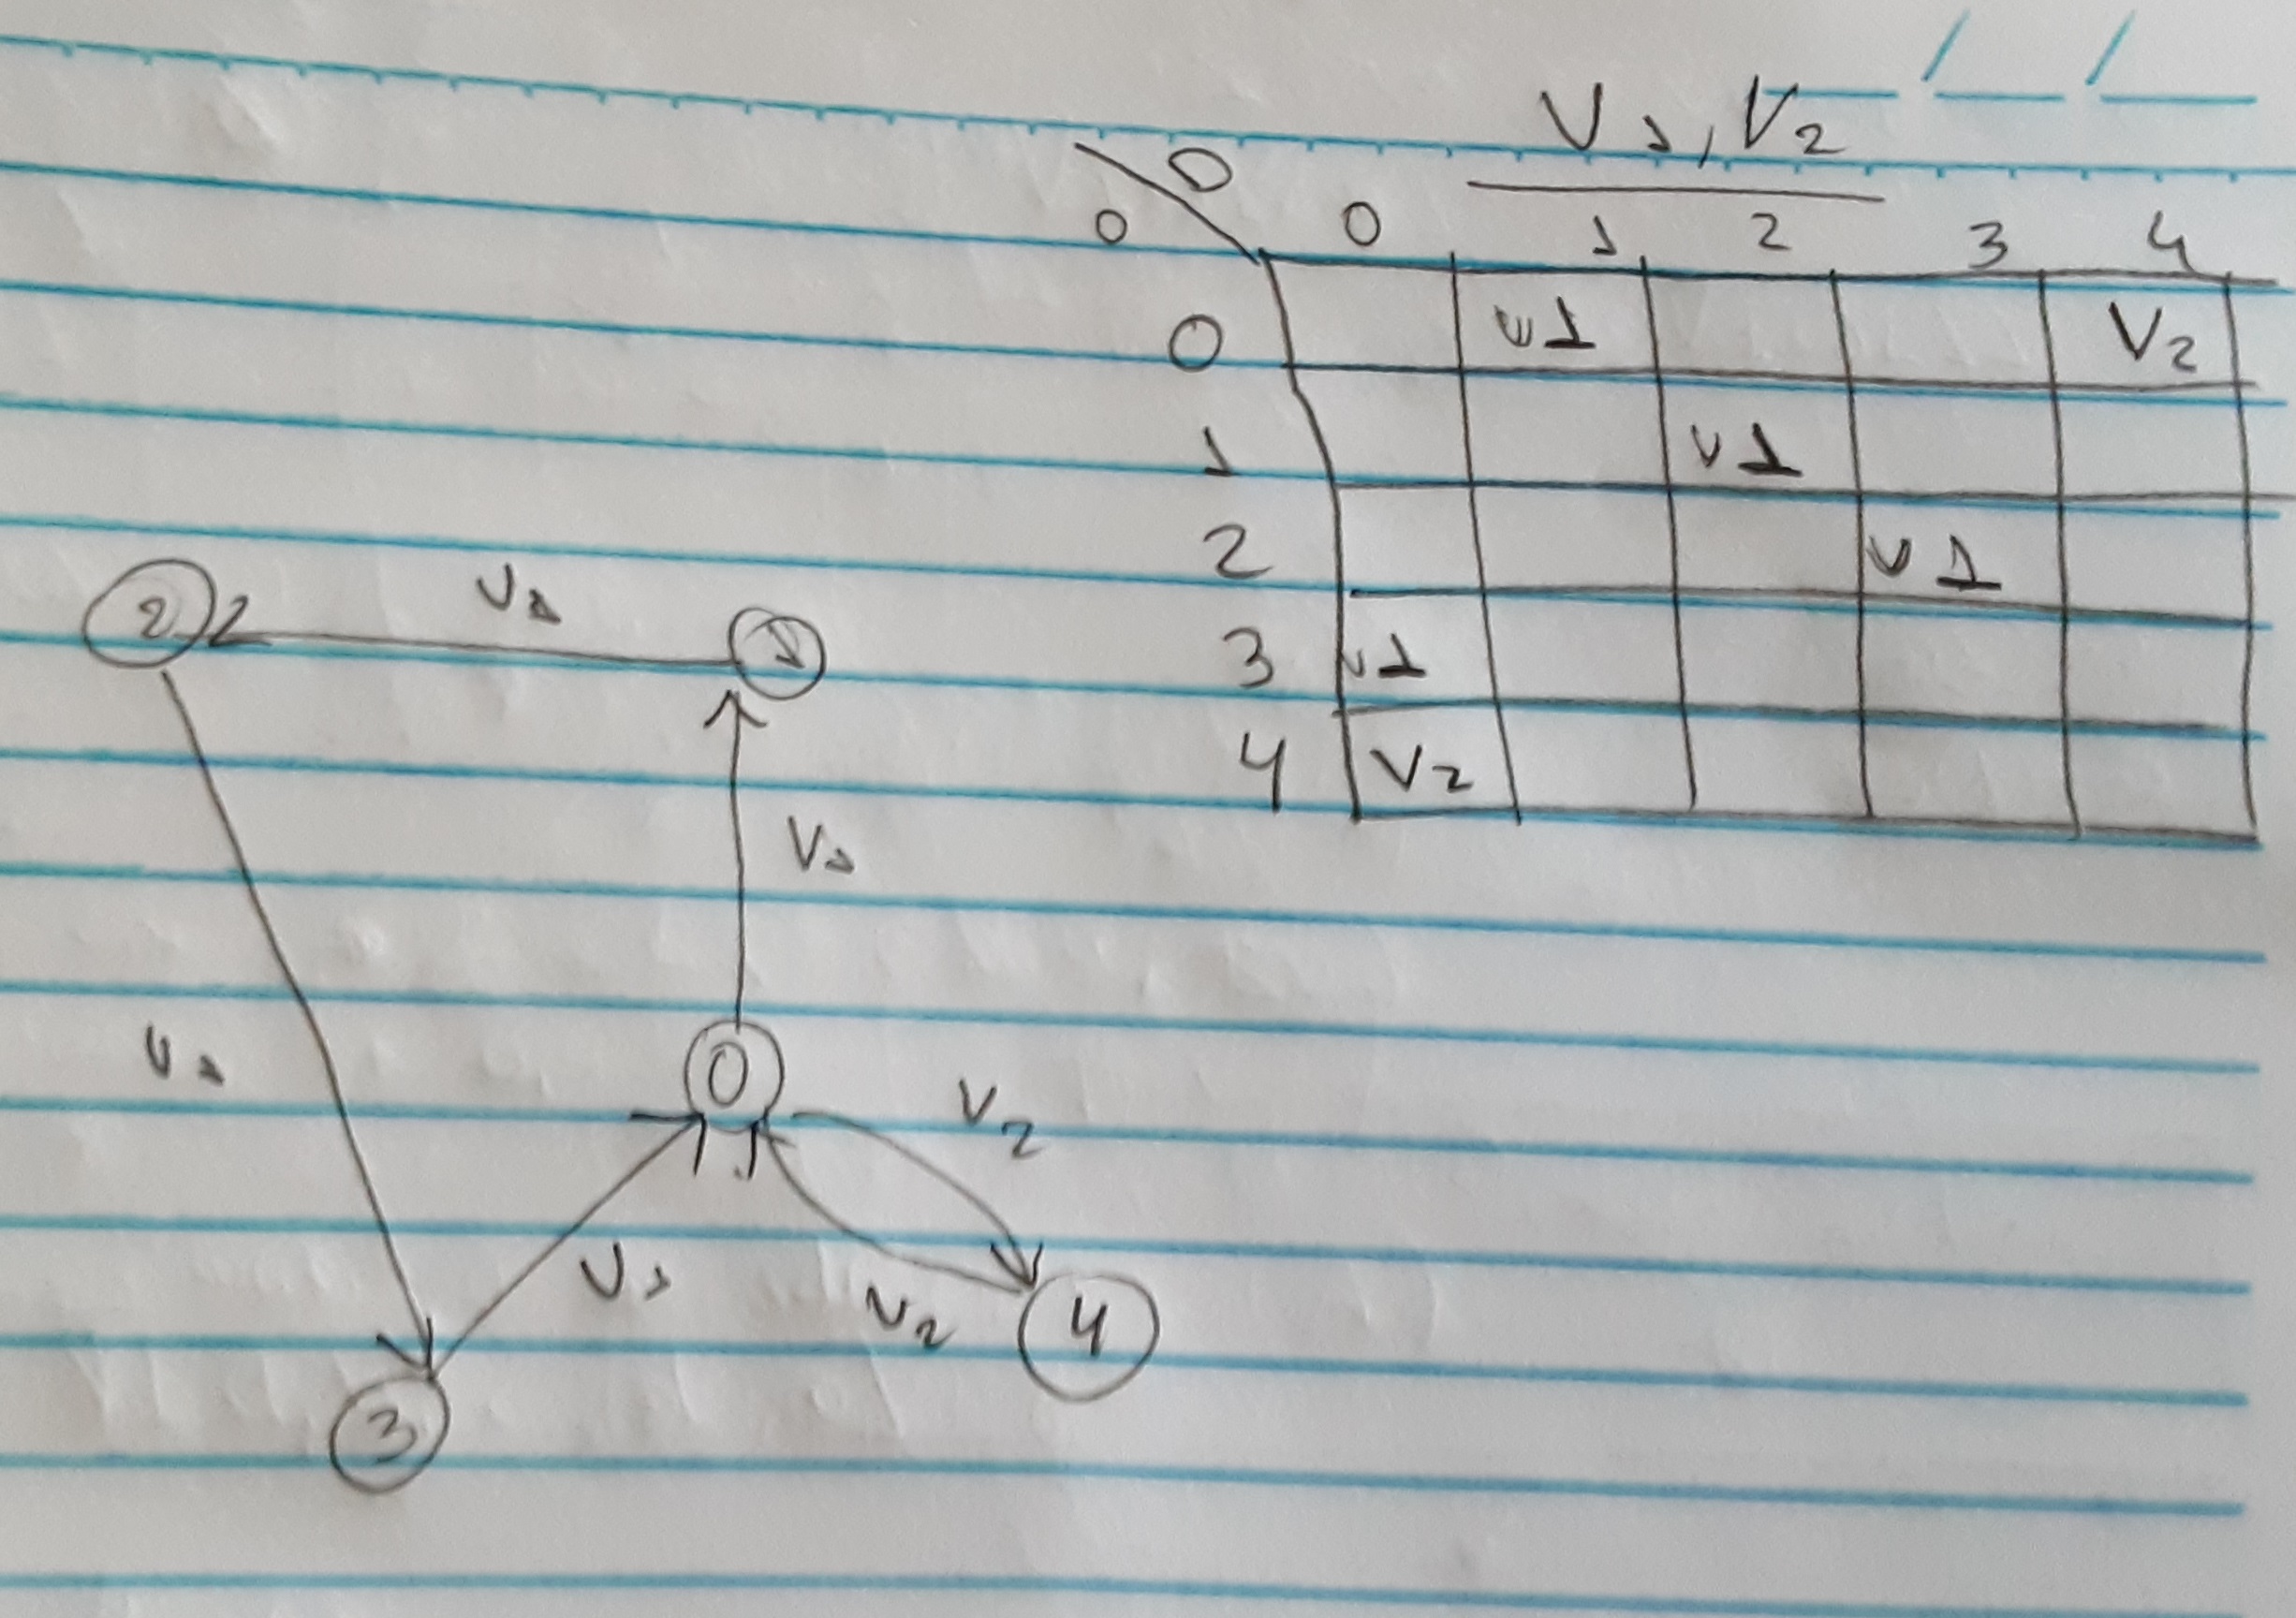 V1, V2
O D
0 1 2 3 4
0 V1 V2
1 V1
2 V1
3 V1
4 V2
2 V1 1
V1
V1 0 V2
V1 V2 4
3